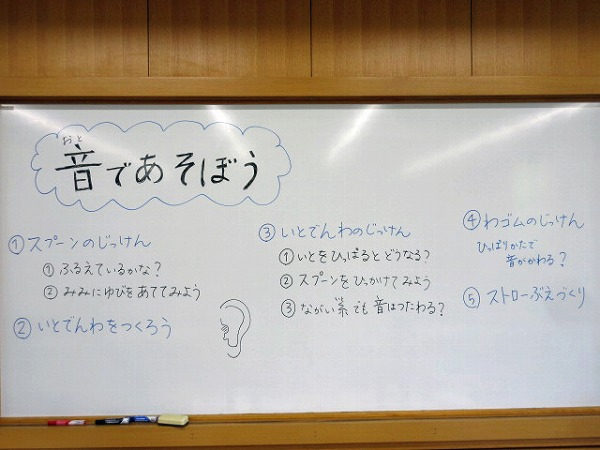 おと
音であそぼう
①スプーンのじっけん
①ふるえているかな?
②みみにゆびをあててみよう
②いとでんわをつくろう
③いとでんわのじっけん
①いとをひっぱるとどうなる?
②スプーンをひっかけてみよう
③ながい糸でも音はつたわる?
④わゴムのじっけん
ひっぱりかたで
音がかわる?
⑤ストローぶえづくり